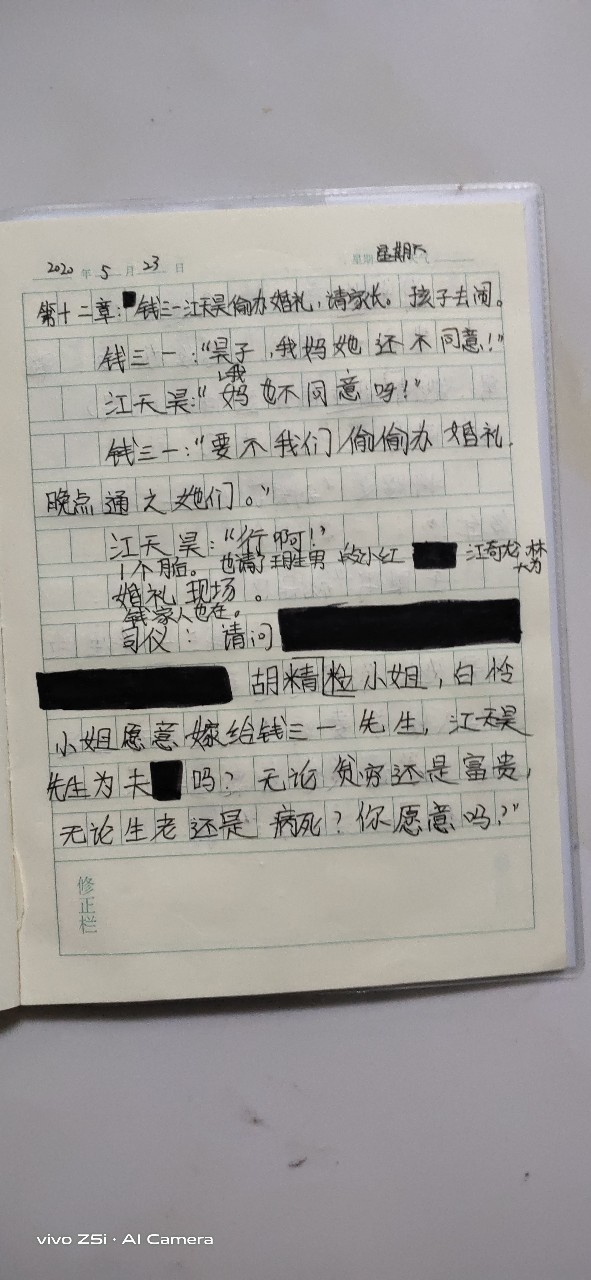 2020年5月23日 星期 星期六
第十二章:钱三一江天昊偷办婚礼,请家长。孩子去闹。
钱三一:“昊子,我妈她还不同意!”
江天昊:“我妈也不同意吗!”
钱三一:“要不我们偷偷办婚礼,
晚点通之她们。”
江天昊:“行啊!”
1个月后。也请了王胜男 段小红 江奇龙 林大为
婚礼现场。
钱家人也在。
司仪:请问
胡精检小姐,白怜
小姐愿意嫁给钱三一先生,江天昊
先生为夫吗?无论贫穷还是富贵,
无论生老还是病死?你愿意吗?”
修正栏
vivo Z5i · AI Camera